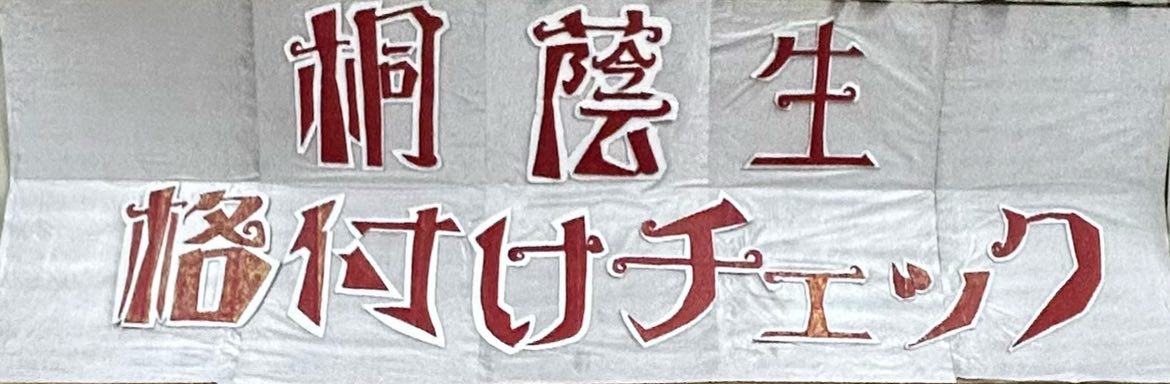 桐蔭生
格付けチェック